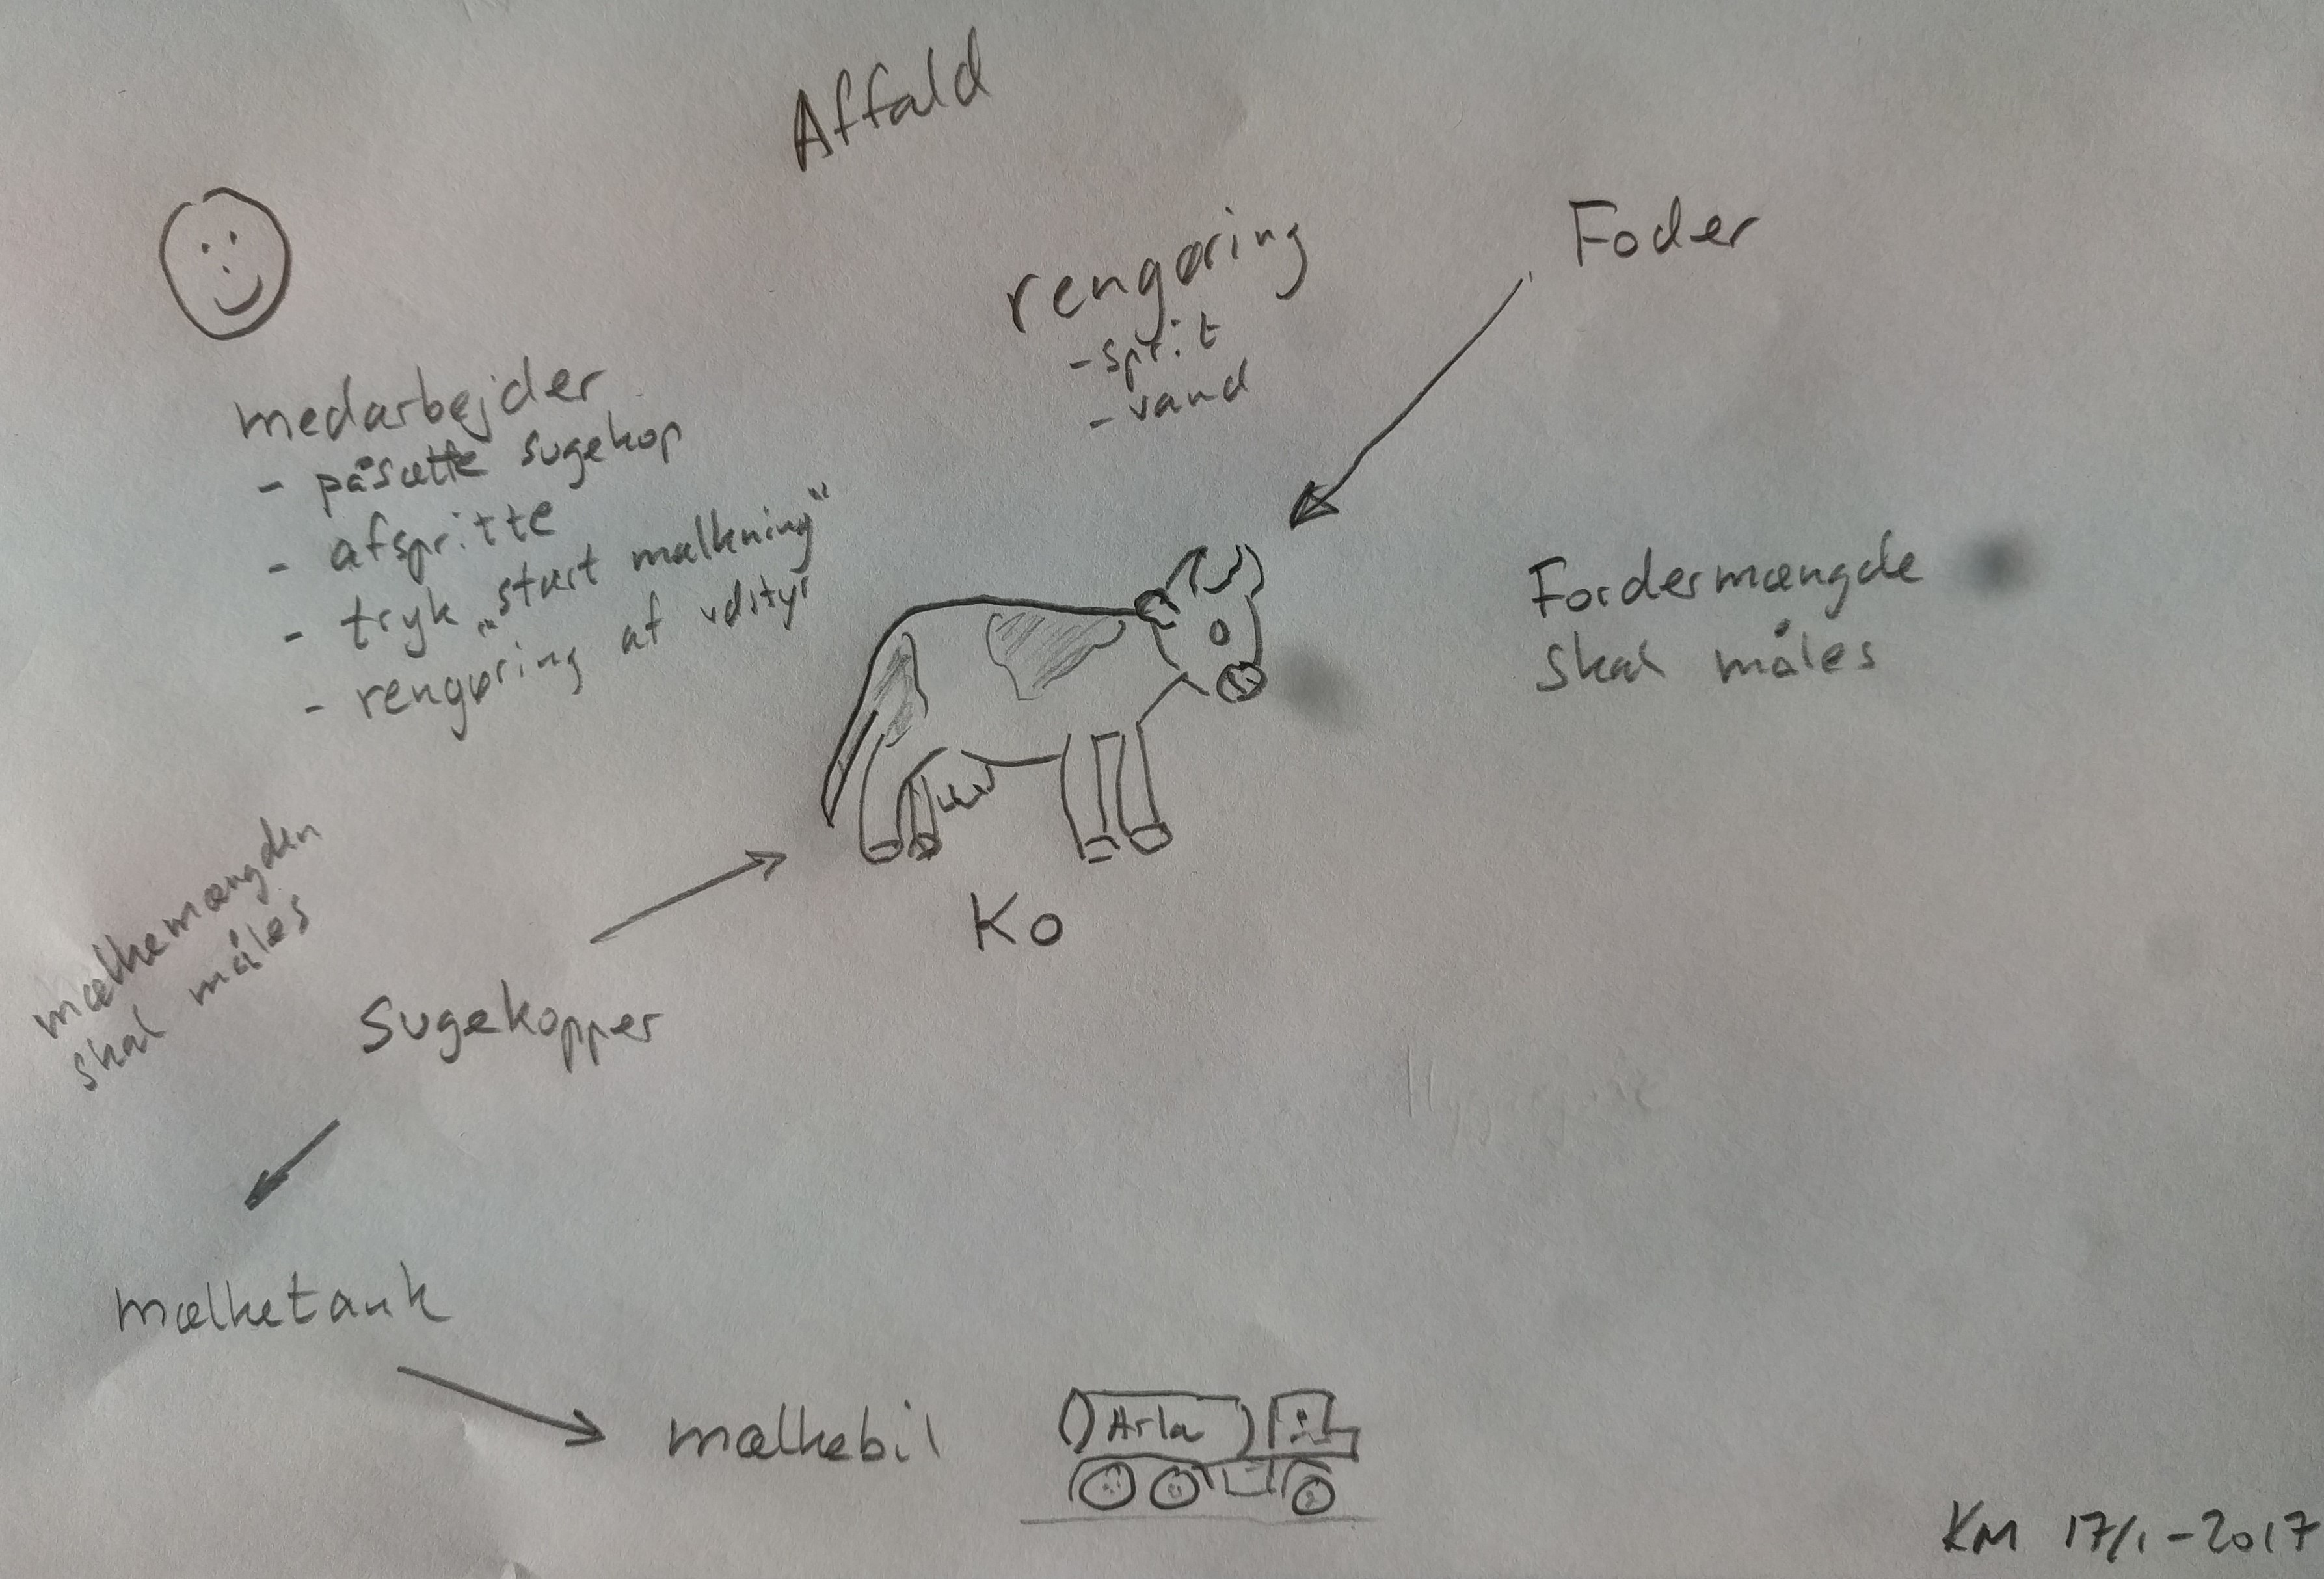 Affald
rengøring
- sprit
- vand
Foder
medarbejder
- påsætte sugekop
- afspritte
- tryk "start malkning"
- rengøring af
Fordermængde
skal måles
Ko
mælkemængden
skal måles
Sugekopper
mælketank
mælkebil
Arla
KM 17/1-2017